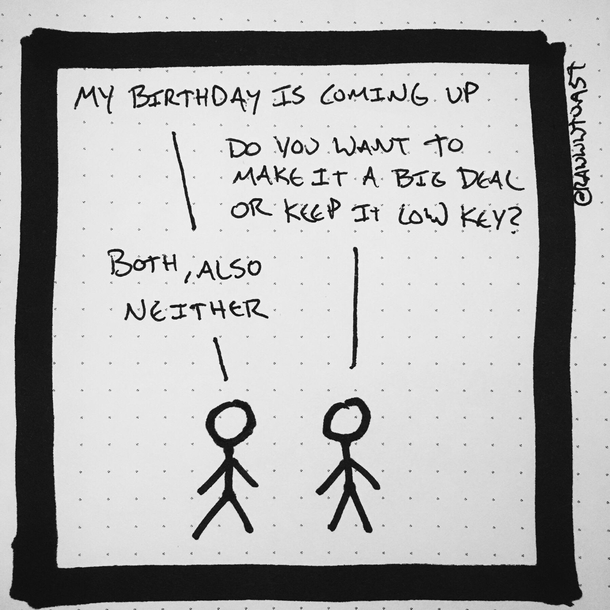 MY BIRTHDAY IS COMING UP
DO YOU WANT TO
MAKE IT A BIG DEAL
OR KEEP IT LOW KEY?
BOTH, ALSO
NEITHER
@RAWWWTOAST